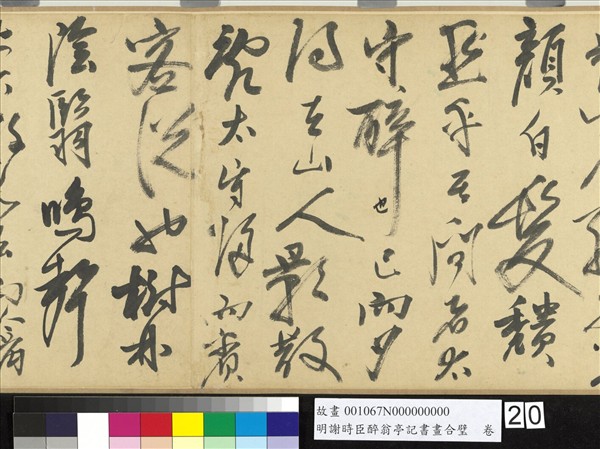 顏白髮頹
然乎其間者太
守醉也已而夕
陽在山人影散
亂太守歸而賓
客從也樹林
陰翳鳴聲
故畫 001067N000000000
明謝時臣醉翁亭記書畫合璧 卷
20